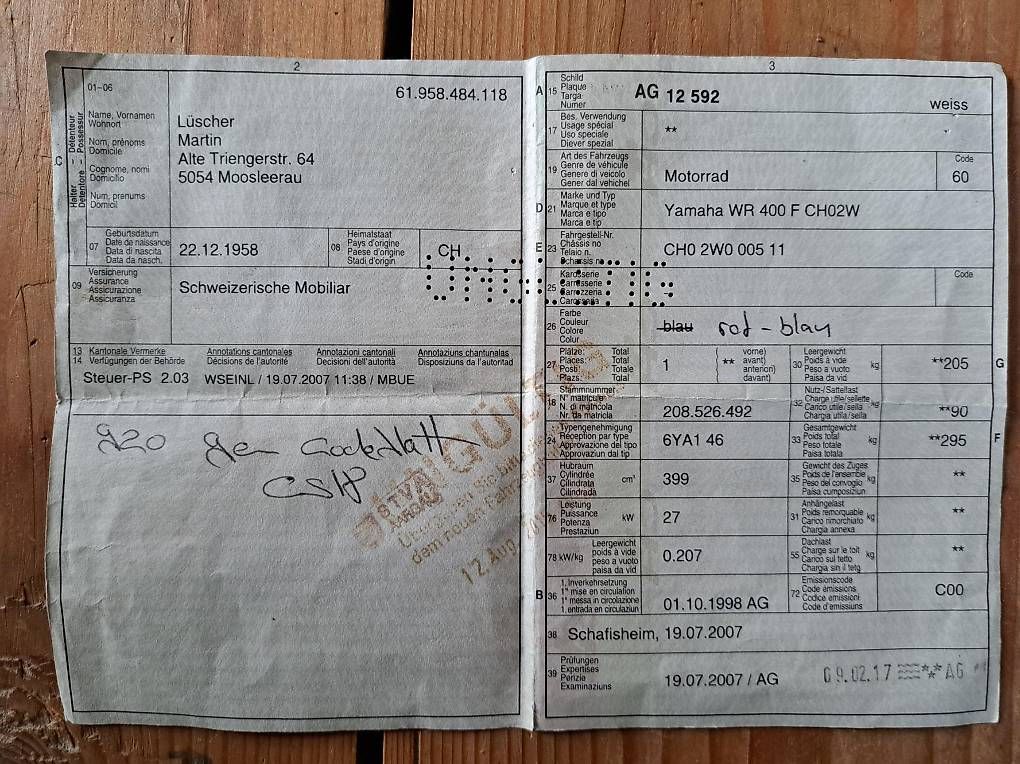 2
01–06
61.958.484.118
Halter
Détenteur
Detentore
Possessur
Name, Vornamen
Wohnort
Nom, prénoms
Domicile
Cognome, nomi
Domicilio
Num, prenums
Domicil
C
Lüscher
Martin
Alte Triengerstr. 64
5054 Moosleerau
07
Geburtsdatum
Date de naissance
Data di nascita
Data da nasch.
22.12.1958
08
Heimatstaat
Pays d'origine
Paese d'origine
Stadi d'origin
CH
09
Versicherung
Assurance
Assicurazione
Assicuranza
Schweizerische Mobiliar
13 Kantonale Vermerke Annotations cantonales Annotazioni cantonali Annotaziuns chantunalas
14 Verfügungen der Behörde Décisions de l'autorité Decisioni dell'autorità Disposiziuns da l'autoritad
Steuer-PS 2.03 WSEINL / 19.07.2007 11:38 / MBUE
UNGÜLTIG
STVA
AARGAU
dem neuen
12. Aug.
3
A 15
Schild
Plaque
Targa
Numer
AG 12 592
weiss
17
Bes. Verwendung
Usage spécial
Uso speciale
Diever spezial
**
19
Art des Fahrzeugs
Genre de véhicule
Genere di veicolo
Gener dal vehichel
Motorrad
Code
60
D 21
Marke und Typ
Marque et type
Marca e tipo
Marca e tip
Yamaha WR 400 F CH02W
E 23
Fahrgestell-Nr.
Châssis no
Telaio n.
Schassis nr.
CH0 2W0 005 11
UNGÜLTIG
25
Karosserie
Carrosserie
Carrozzeria
Carossaria
Code
26
Farbe
Couleur
Colore
Colur
blau rot - blau
27
Plätze: Total
Places: Total
Posti: Totale
Plazs: Total
1
(** vorne)
avant)
anteriori)
davant)
30
Leergewicht
Poids à vide
Peso a vuoto
Paisa da vid
kg
**205
G
18
Stammnummer
N° matricule
N. di matricola
Nr. da matricla
208.526.492
32
Nutz-/Sattellast
Charge utile/sellette
Carico utile/sella
Chargia utila/sella
kg
**90
24
Typengenehmigung
Réception par type
Approvazione del tipo
Approvaziun dal tip
6YA1 46
33
Gesamtgewicht
Poids total
Peso totale
Paisa totala
kg
**295
F
37
Hubraum
Cylindrée
Cilindrata
Cilindrada
cm³
399
35
Gewicht des Zuges
Poids de l'ensemble
Peso del convoglio
Paisa cumposiziun
kg
**
76
Leistung
Puissance
Potenza
Prestaziun
kW
27
31
Anhängelast
Poids remorquable
Carico rimorchiato
Chargia annexa
kg
**
78 kW/kg
Leergewicht
poids à vide
peso a vuoto
paisa da vid
0.207
55
Dachlast
Charge sur le toit
Carico sul tetto
Chargia sin il tetg
kg
**
B 36
1. Inverkehrsetzung
1re mise en circulation
1a messa in circolazione
1. entrada en circulaziun
01.10.1998 AG
72
Emissionscode
Code émissions
Codice emissioni
Code d'emissiuns
C00
38
Schafisheim, 19.07.2007
39
Prüfungen
Expertises
Perizie
Examinaziuns
19.07.2007 / AG
09.02.17 AG